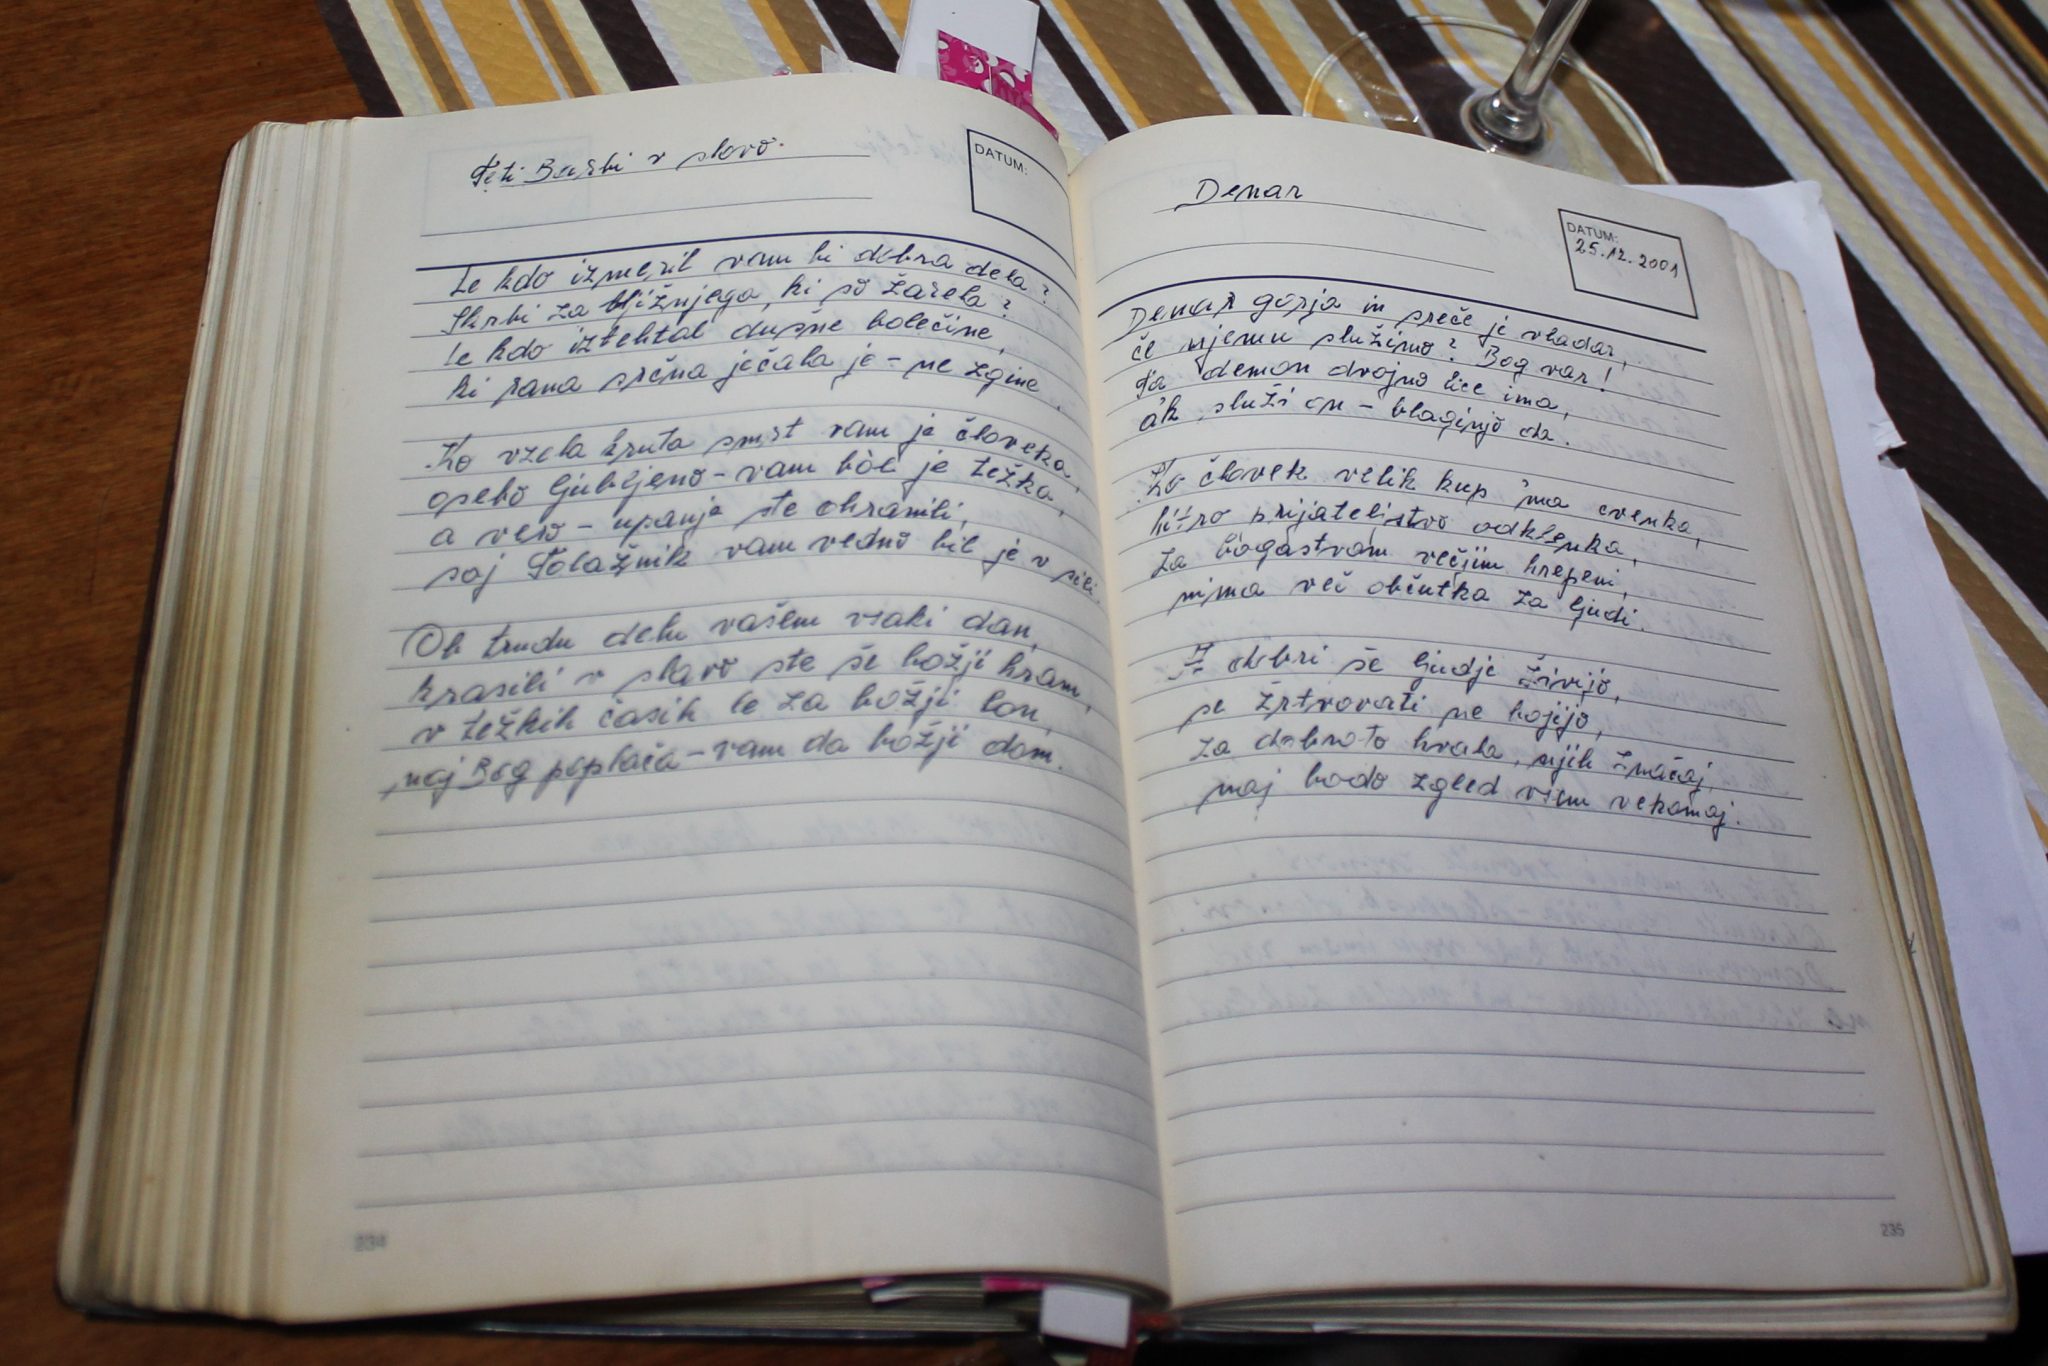 Teti Barbi v slovo.
DATUM:
Le kdo izmeril vam bi dobra dela?
Skrbi za bližnjega, ki so žarela?
Le kdo iztehtal dušne bolečine,
ki rana srčna ječala je - ne zgine.
Ko vzela kruta smrt vam je človeka,
osebo ljubljeno - vam bol je težka,
a vero - upanje ste ohranili,
saj Tolažnik vam vedno bil je v sili.
Ob trudu delu vašem vsaki dan,
krasili v slavo ste še božji hram,
v težkih časih le za božji lon,
naj Bog poplača - vam da božji dom.
234
Denar
DATUM:
25.12.2001
Denar gorja in sreče je vladar,
če njemu služimo? Bog var!
Ta demon dvojno lice ima,
ak služi on - blaginjo da.
Ko človek velik kup 'ma cvenka,
hitro prijateljstvo odklenka,
za bogastvom večjim hrepeni,
nima več občutka za ljudi.
I dobri še ljudje živijo,
se žrtvovati ne bojijo,
za dobroto hvala, njih značaj,
naj bodo zgled vsem vekomaj.
235